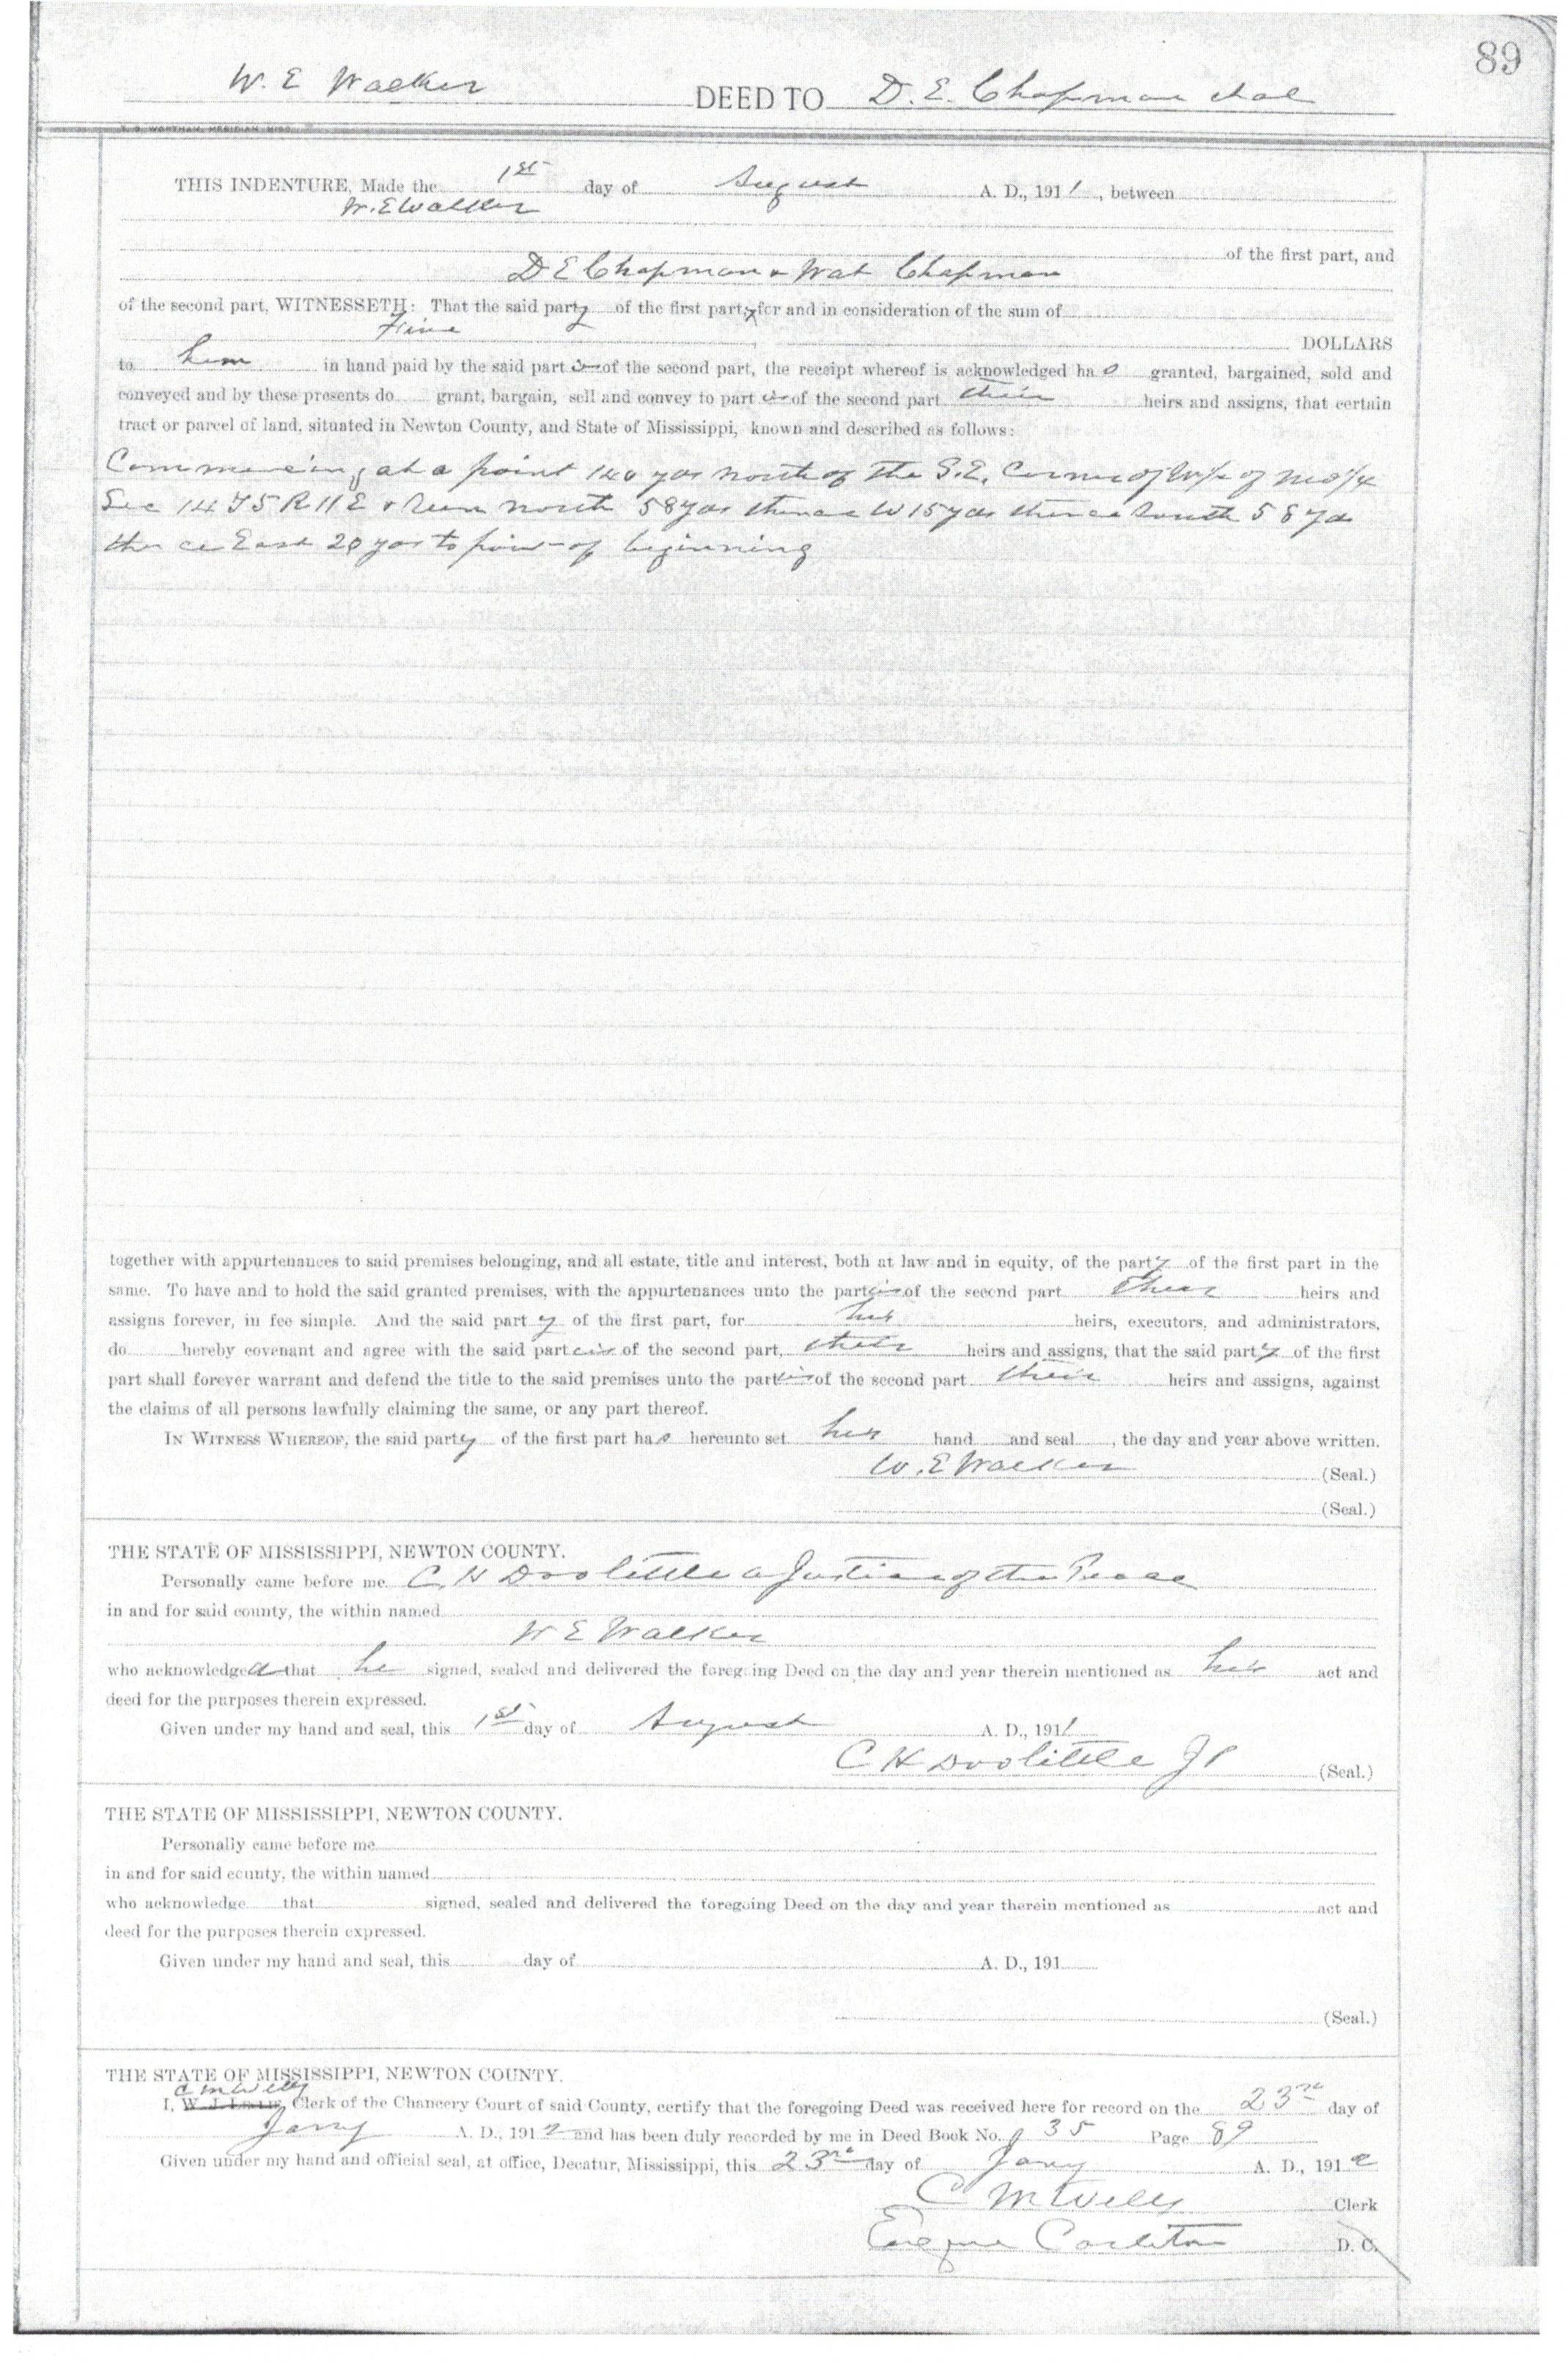 89
W. E Walker DEED TO D. E. Chapman et al
THIS INDENTURE, Made the 1st day of August A. D., 1911, between
W. E Walker
of the first part, and
D E Chapman & Wat Chapman
of the second part, WITNESSETH: That the said party of the first part, for and in consideration of the sum of
Five
DOLLARS
to him in hand paid by the said part of the second part, the receipt whereof is acknowledged has granted, bargained, sold and
conveyed and by these presents do grant, bargain, sell and convey to part of the second part their heirs and assigns, that certain
tract or parcel of land, situated in Newton County, and State of Mississippi, known and described as follows:
Commencing at a point 140 yds north of the S.E. Corner of W 1/2 of
Sec 14 T5 R 11 E & run north 58 yds thence W 15 yds thence South 58 yds
thence East 20 yds to point of beginning
together with appurtenances to said premises belonging, and all estate, title and interest, both at law and in equity, of the party of the first part in the
same. To have and to hold the said granted premises, with the appurtenances unto the parties of the second part their heirs and
assigns forever, in fee simple. And the said party of the first part, for his heirs, executors, and administrators,
do hereby covenant and agree with the said parties of the second part, their heirs and assigns, that the said party of the first
part shall forever warrant and defend the title to the said premises unto the parties of the second part their heirs and assigns, against
the claims of all persons lawfully claiming the same, or any part thereof.
IN WITNESS WHEREOF, the said party of the first part has hereunto set his hand and seal, the day and year above written.
W. E Walker (Seal.)
(Seal.)
THE STATE OF MISSISSIPPI, NEWTON COUNTY.
Personally came before me C. H Doolittle a Justice of the Peace
in and for said county, the within named
W E Walker
who acknowledged that he signed, sealed and delivered the foregoing Deed on the day and year therein mentioned as his act and
deed for the purposes therein expressed.
Given under my hand and seal, this 1st day of August A. D., 1911
C H Doolittle JP (Seal.)
THE STATE OF MISSISSIPPI, NEWTON COUNTY.
Personally came before me
in and for said county, the within named
who acknowledge that signed, sealed and delivered the foregoing Deed on the day and year therein mentioned as act and
deed for the purposes therein expressed.
Given under my hand and seal, this day of A. D., 191
(Seal.)
THE STATE OF MISSISSIPPI, NEWTON COUNTY.
C M Wells
I, Clerk of the Chancery Court of said County, certify that the foregoing Deed was received here for record on the 23rd day of
Jany A. D., 1912 and has been duly recorded by me in Deed Book No. 35 Page 89
Given under my hand and official seal, at office, Decatur, Mississippi, this 23rd day of Jany A. D., 1912
C M Wells Clerk
Eugene Carleton D. C.